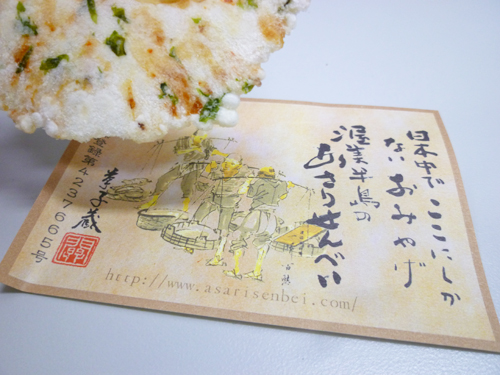 日本中でここにしか
ないおみやげ
渥美半島の
あさりせんべい
登録第4237665号
http://www.asarisenbei.com/